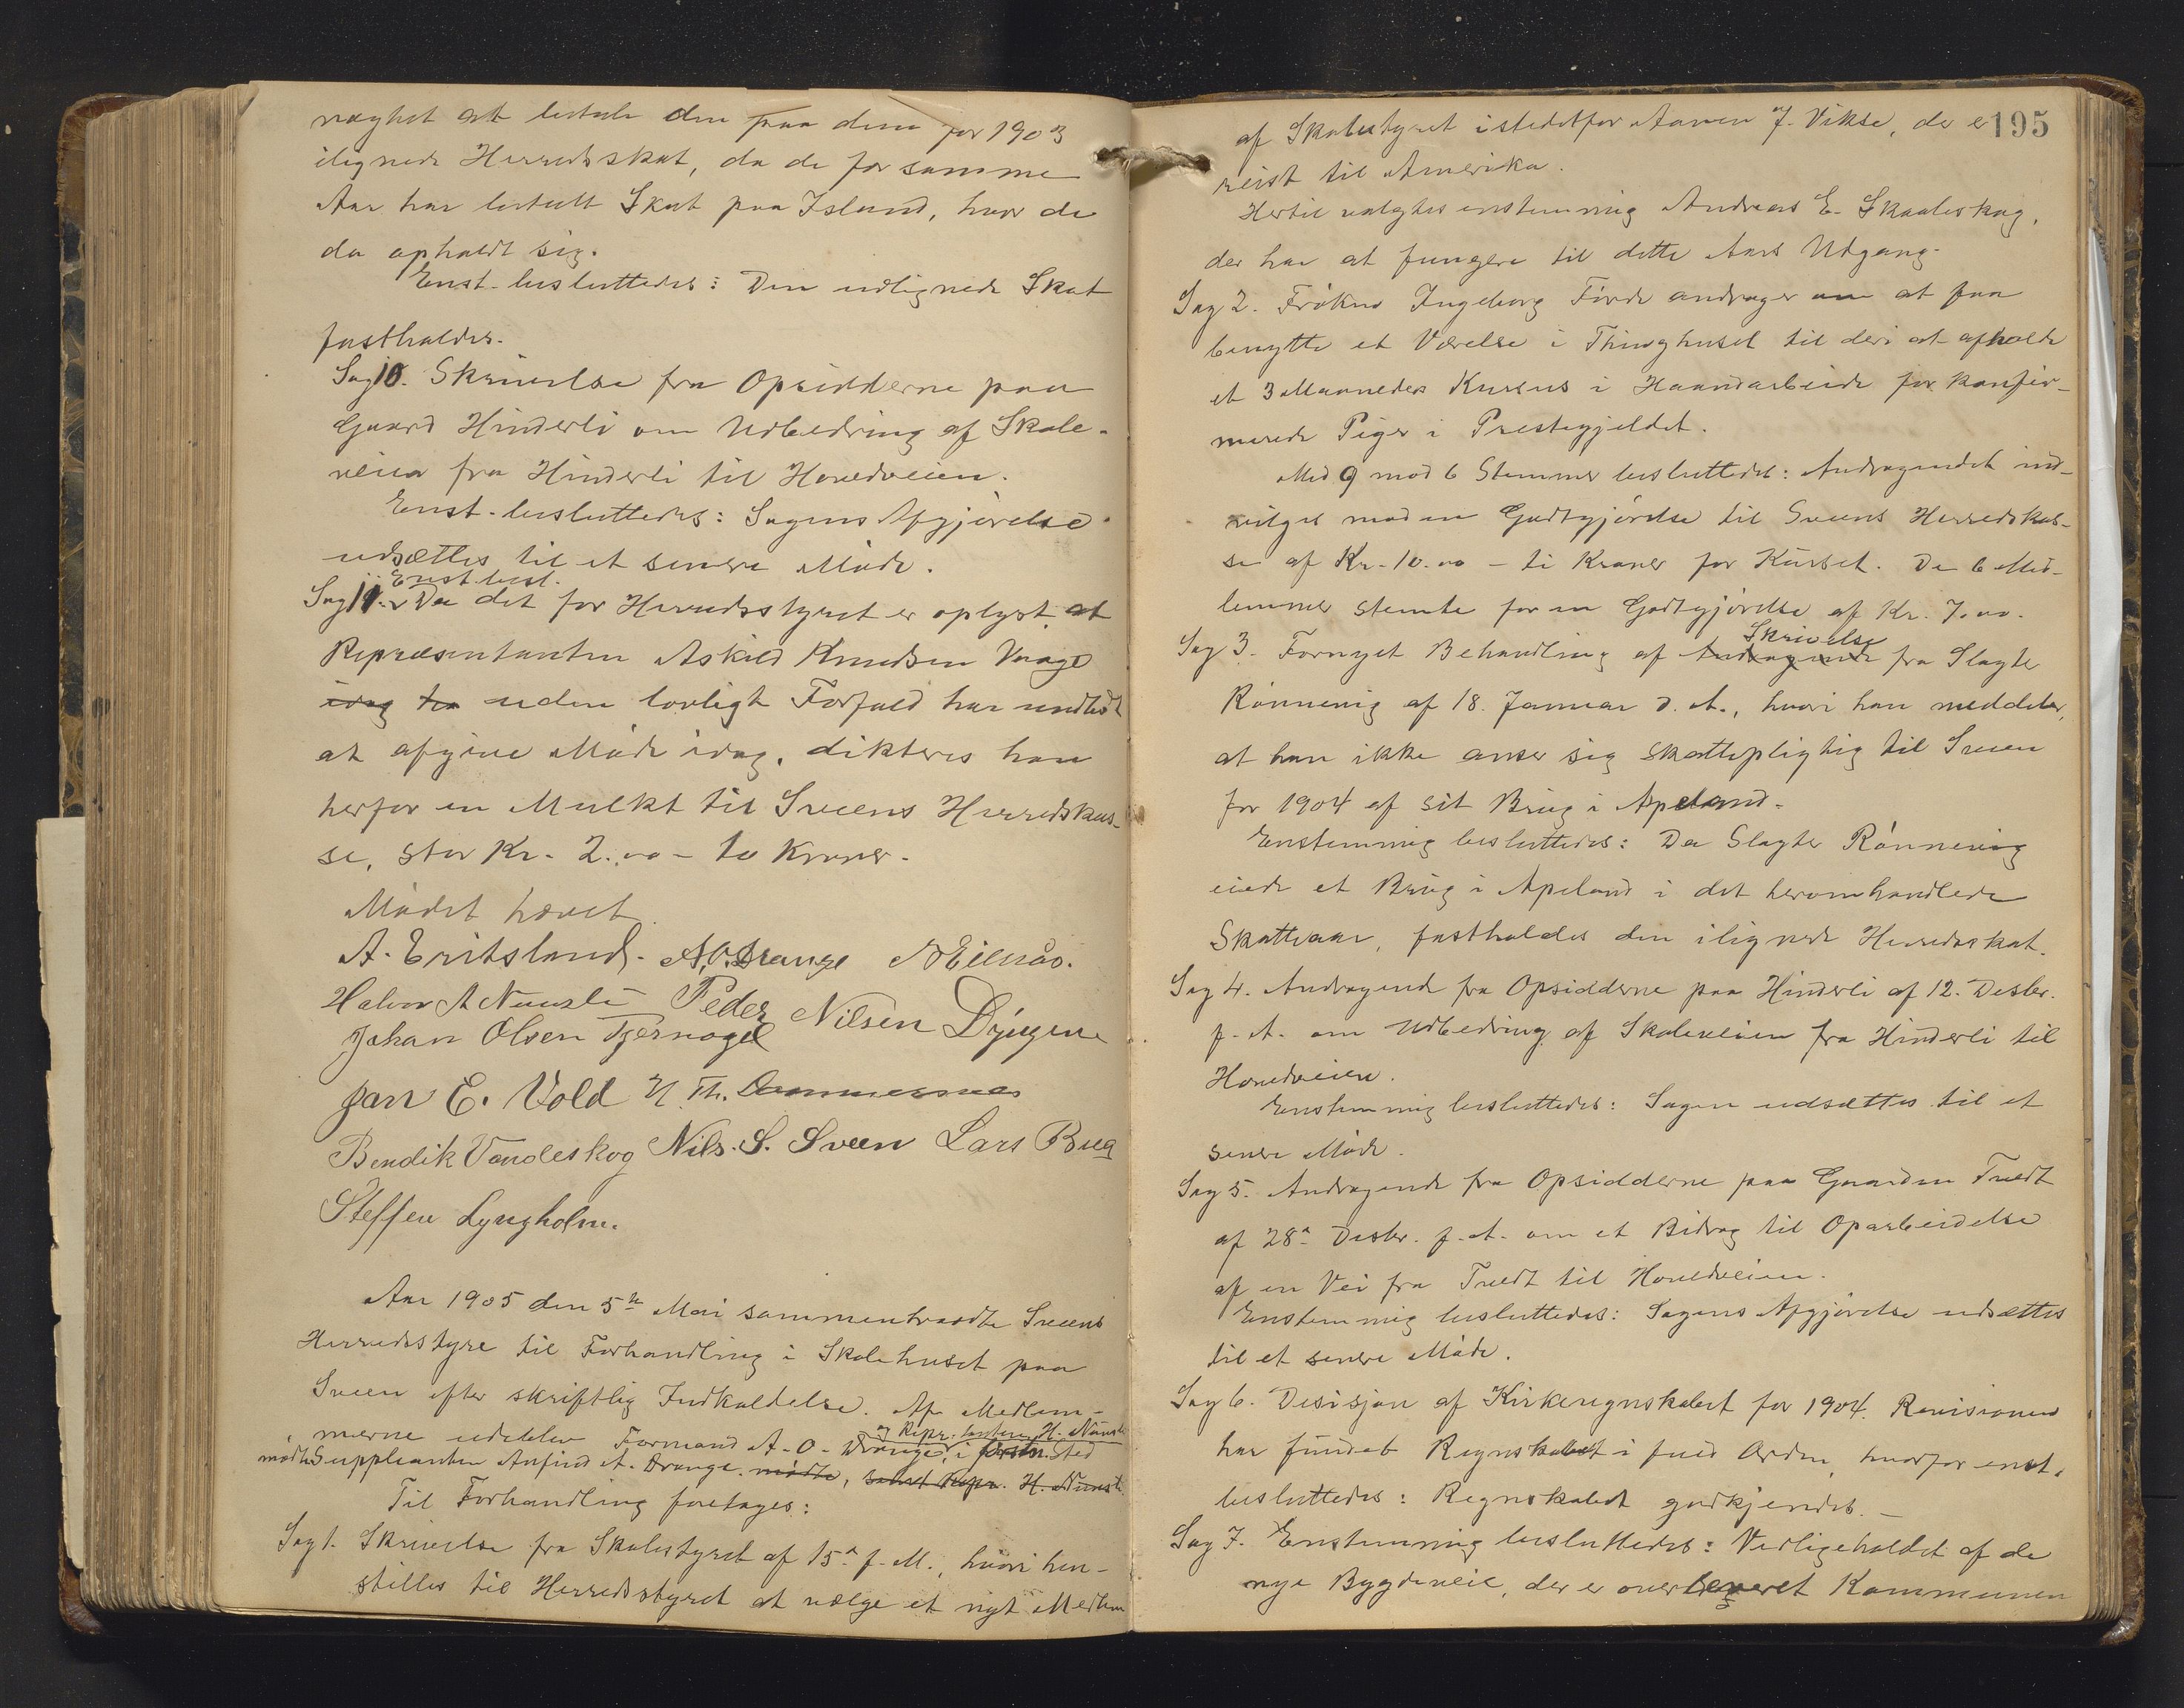 nægtet at betale den paa dem for 1903
ilignede Herredsskat, da de for samme
Aar har betalt Skat paa Island, hvor de
da opholdt sig.
Enst. besluttedes: Den udlignede Skat
fastholdes.
Sag 10. Skrivelse fra Opsidderne paa
Gaard Hinderli om Udbedring af Skole-
veien fra Hinderli til Hovedveien.
Enst. besluttedes: Sagens Afgjørelse
udsættes til et senere Møde.
Enst. besl.
Sag 11. Da det for Herredsstyret er oplyst, at
Repræsentanten Askild Knudsen Vaage
idag har uden lovligt Forfald har undladt
at afgive Møde idag, dikteres han
herfor en Mulkt til Sveens Herredskas-
se, stor Kr. 2.00 - to Kroner.
Mødet hævet.
A. Eritsland. A. O. Drange N Eilsås.
Halvor A Nuusli Peder Nilsen Dyngen
Johan Olsen Tjernagel
Jan E. Vold N. Th. Dommersnes
Bendik Vandeskog Nils. S. Sveen Lars Bua
Steffen Lyngholm.
Aar 1905 den 5te Mai sammentraadte Sveens
Herredsstyre til Forhandling i Skolehuset paa
Sveen efter skriftlig Indkaldelse. Af Medlem-
og Repr:tanten H. Nunsli
merne udeblev Formand A. O. Drange, i førstn. Sted
mødte Suppleanten Anfind A. Drange. mødte, samt Repr. H. Nunsli.
Til Forhandling foretages:
Sag 1. Skrivelse fra Skolestyret af 15de f. M., hvori hen-
stilles til Herredsstyret at vælge et nyt Medlem
195
af Skolestyret istedetfor Aamen J. Vikse, der er
reist til Amerika.
Hertil valgtes enstemmig Andreas E. Skaaleskog,
der har at fungere til dette Aars Udgang.
Sag 2. Frøken Ingeborg Førde andrager om at faa
benytte et Værelse i Thinghuset til deri at afholde
et 3 Maaneders Kursus i Haandarbeide for konfir-
merede Piger i Prestegjeldet.
Med 9 mod 6 Stemmer besluttedes: Andragendet ind-
vilges mod en Godtgjørelse til Sveens Herredskas-
se af Kr. 10.00 - ti Kroner for Kurset. De 6 Med-
lemmer stemte for en Godtgjørelse af Kr. 7.00.
Skrivelse
Sag 3. Fornyet Behandling af Andragende fra Slagter
Rønnevig af 18. Januar d. A., hvori han meddeler,
at han ikke anser sig skattepligtig til Sveen
for 1904 af sit Brug i Apeland.
Enstemmig besluttedes: Da Slagter Rønnevig
eiede et Brug i Apeland i det heromhandlede
Skatteaar, fastholdes den ilignede Herredsskat.
Sag 4. Andragende fra Opsidderne paa Hinderli af 12. Desbr.
f. A. om Udbedring af Skoleveien fra Hinderli til
Hovedveien.
Enstemmig besluttedes: Sagen udsættes til et
senere Møde.
Sag 5. Andragende fra Opsidderne paa Gaarden Tvedt
af 28de Desbr. f. A. om et Bidrag til Oparbeidelse
af en Vei fra Tvedt til Hovedveien.
Enstemmig besluttedes: Sagens Afgjørelse udsættes
til et senere Møde.
Sag 6. Desisjon af Kirkeregnskabet for 1904. Revisionen
har fundet Regnskabet i fuld Orden, hvorfor enst.
besluttedes: Regnskabet godkjendes. -
Sag 7. Enstemmig besluttedes: Vedligeholdet af de
nye Bygdeveie, der er overleveret Kommunen